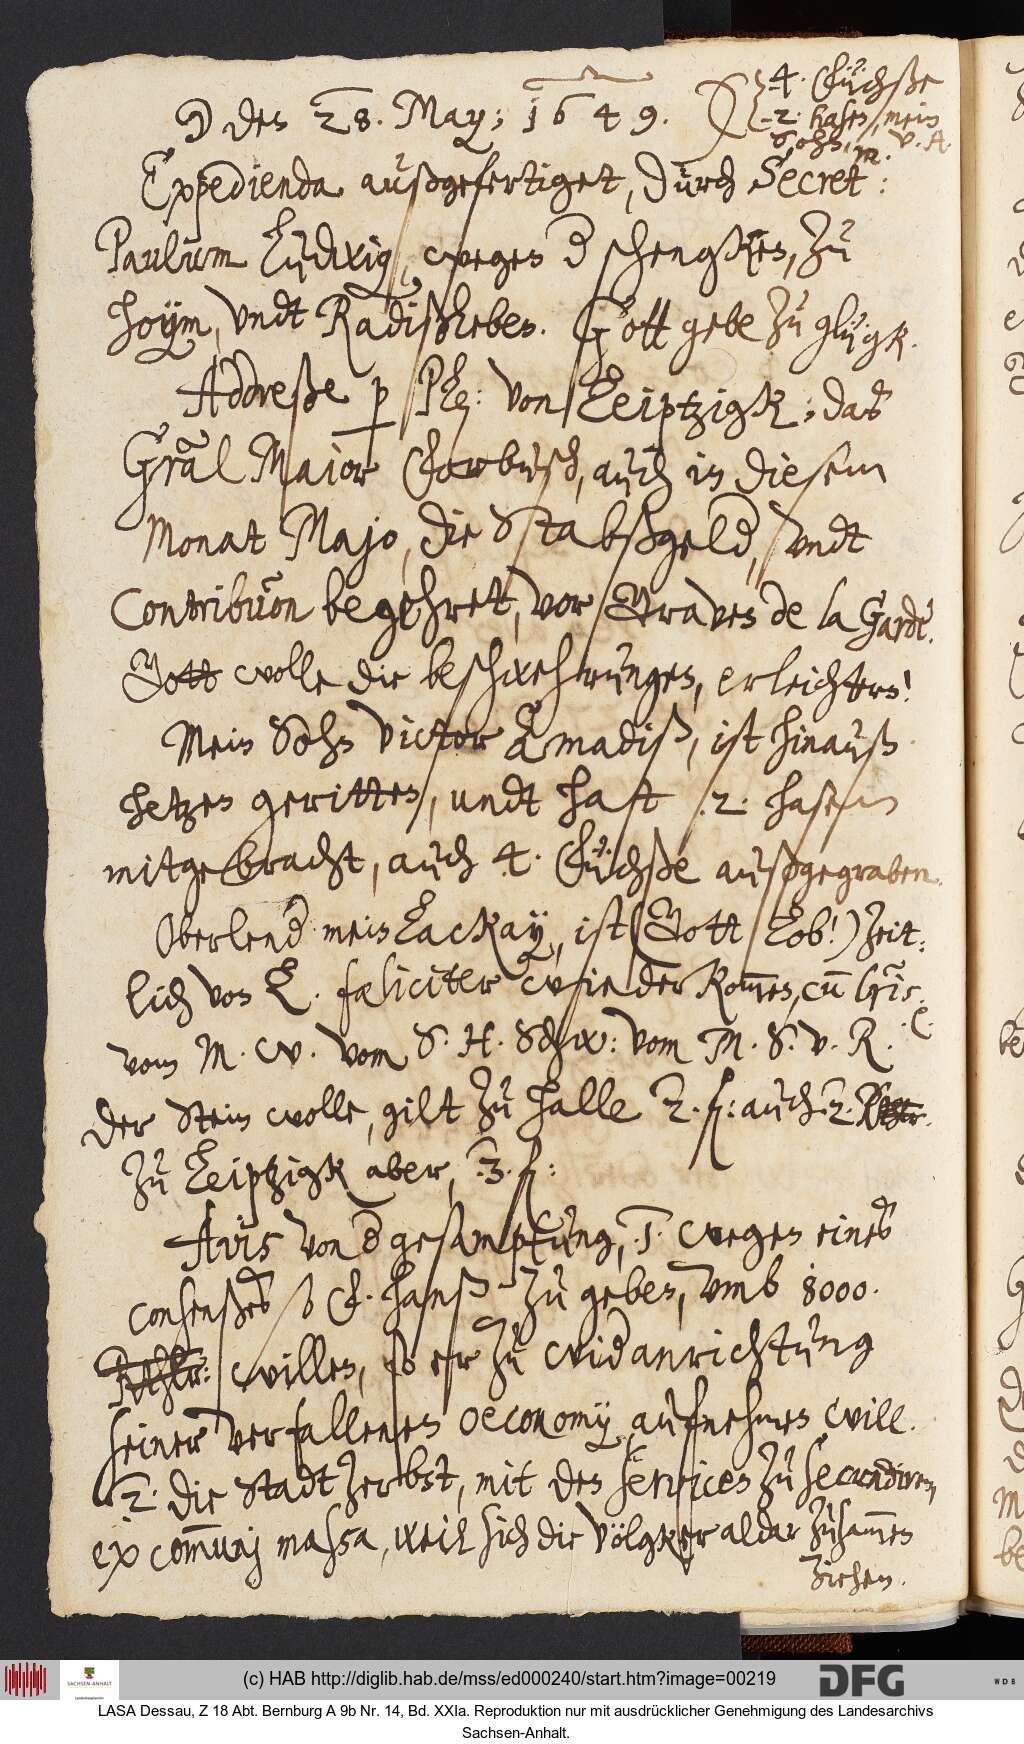 ☽ den 28. May; 1649.
{ 4. Füchße
2: hasen, mein
Sohn, m. V. A.
Expedienda außgefertiget, durch Secret:
Paulum Ludwig, wegen d schengken, zu
Hoym, undt Radißleben. Gott gebe zu glügk.
Addreße p Ph: von Leiptzigk; das
Gral Maior, auch in diesem
Monat Majo, die Stabßgeld, undt
Contribuon begehret, vor Graven de la Gardie.
Gott wolle die beschwehrungen, erleichtern!
Mein Sohn Victor Amadiß, ist hinauß
hetzen geritten, undt hatt 2. hasen
mitgebracht, auch 4. Füchße außgegraben.
Oberlend mein Lackay, ist (Gott Lob!) zeit-
lich von L. fœliciter wieder kommen, cum
vom M. W. vom S. H. Schw: vom M. S. v. R.
Der Stein wolle, gilt zu Halle 2. fl: auch 2.
zu Leiptzigk aber, 3. fl:
Avis von d gesampfung, 1. wegen eines
consenßes so F. Hanß zu geben, umb 8000.
Rthlr: willen, so er zu widanrichtung
seiner verfallenen oeconomy aufnehmen will.
2. die Stadt Zerbst, mit den servicen zu secundiren,
ex communj massa, weil sich die völgker aldar zusammen
ziehen.
(c) HAB http://diglib.hab.de/mss/ed000240/start.htm?image=00219
SACHSEN-ANHALT
DFG
WDB
LASA Dessau, Z 18 Abt. Bernburg A 9b Nr. 14, Bd. XXIa. Reproduktion nur mit ausdrücklicher Genehmigung des Landesarchivs
Sachsen-Anhalt.